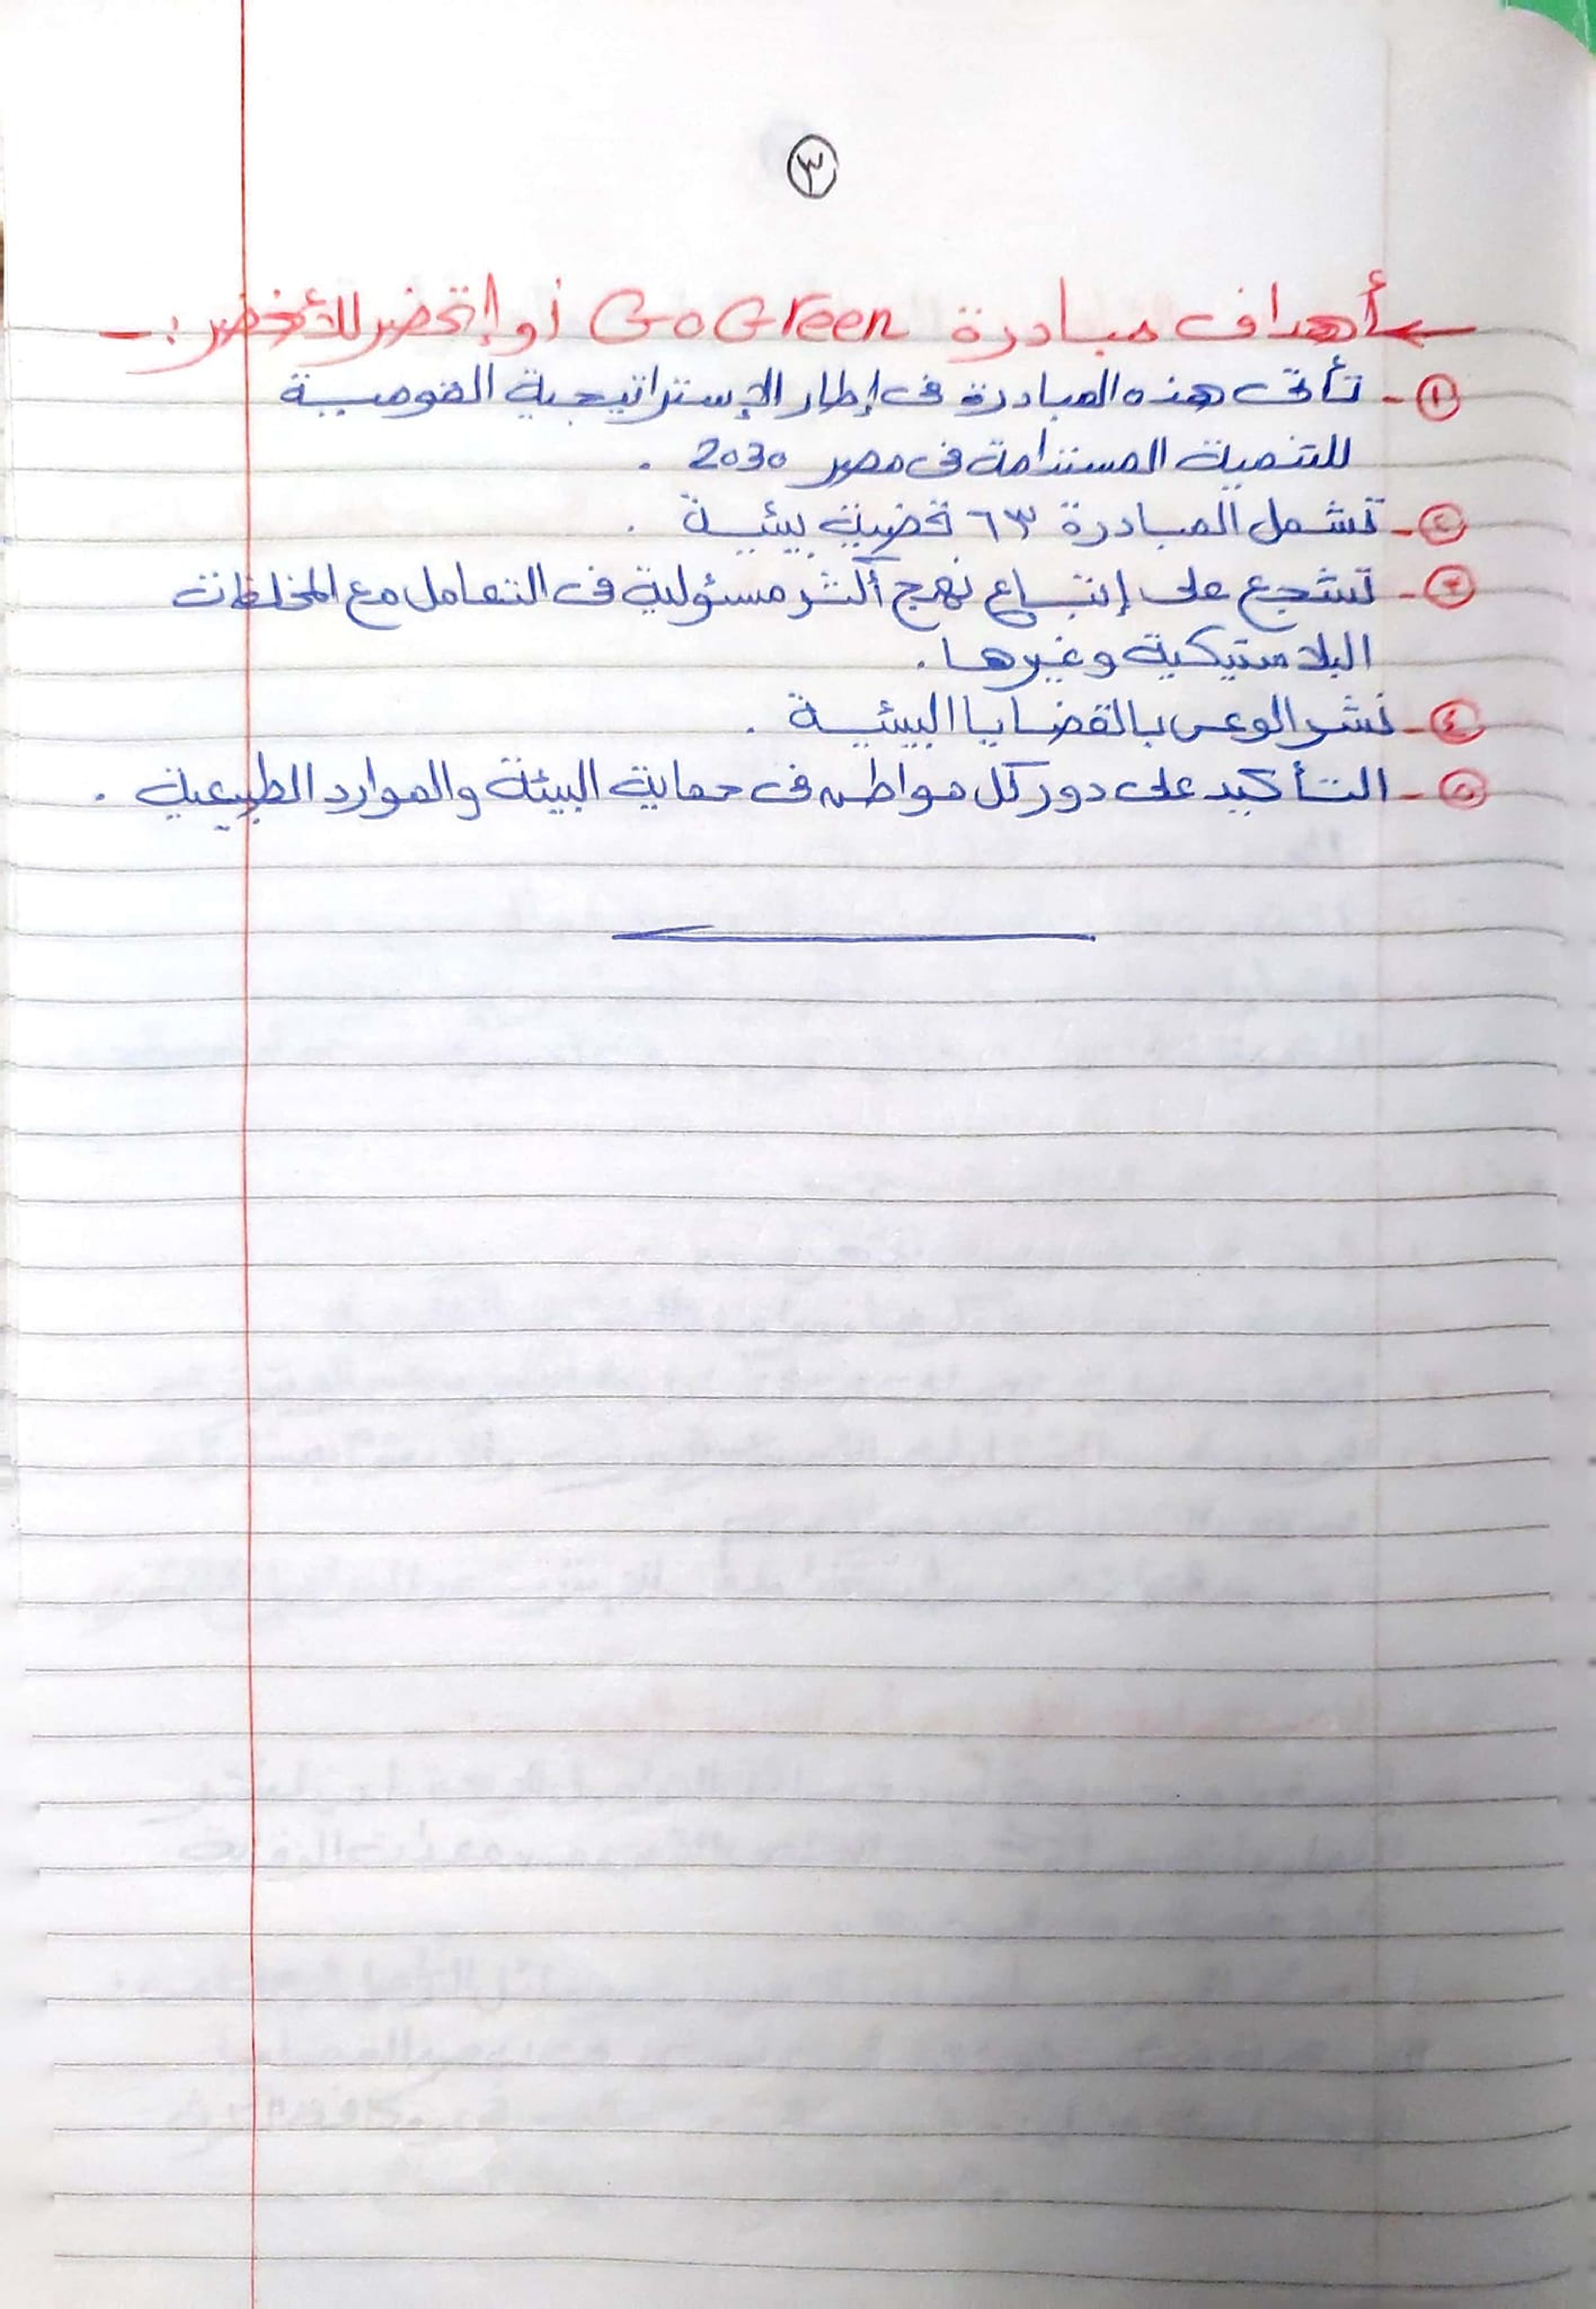 ٣
← أهداف مبادرة Go Green أو إتحضر للأخضر :-
١- تأتى هذه المبادرة فى إطار الإستراتيجية القومية
للتنمية المستدامة فى مصر 2030 .
٢- تشمل المبادرة ٦٣ قضية بيئية .
٣- تشجع على إتباع نهج أكثر مسئولية فى التعامل مع المخلفات
البلاستيكية وغيرها .
٤- نشر الوعى بالقضايا البيئية .
٥- التأكيد على دور كل مواطن فى حماية البيئة والموارد الطبيعية .